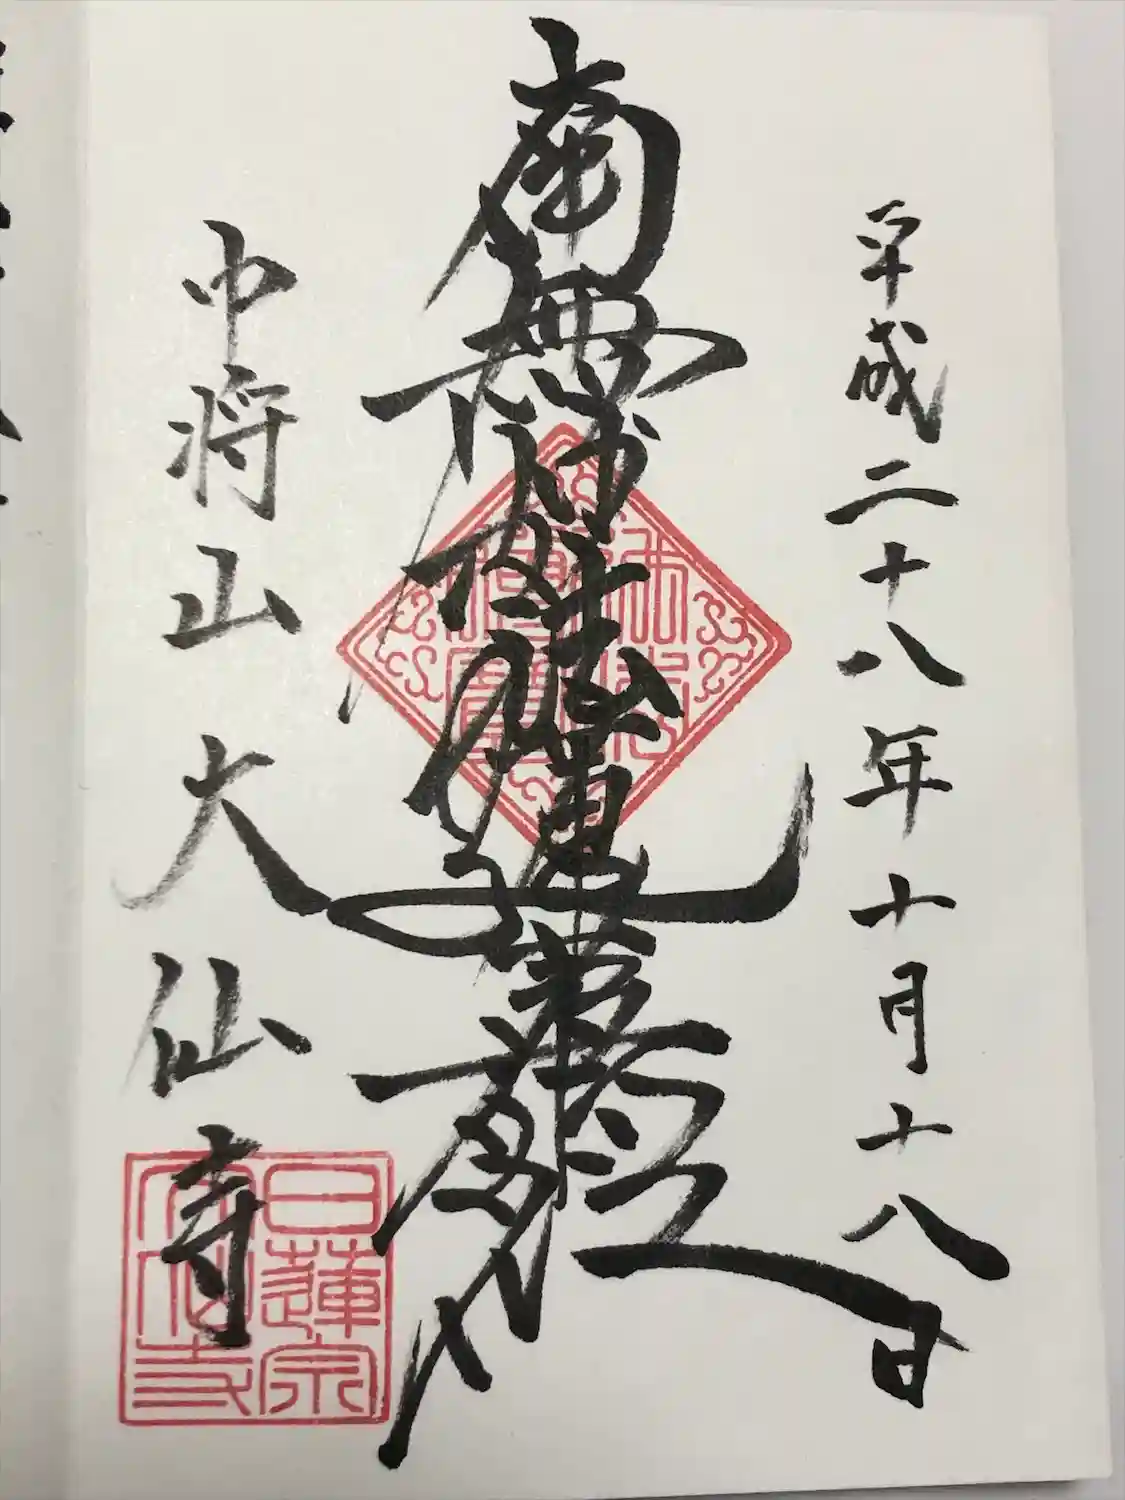 平成二十八年十月十八日
南無妙法蓮華経
中将山大仙寺
日蓮宗
大仙寺